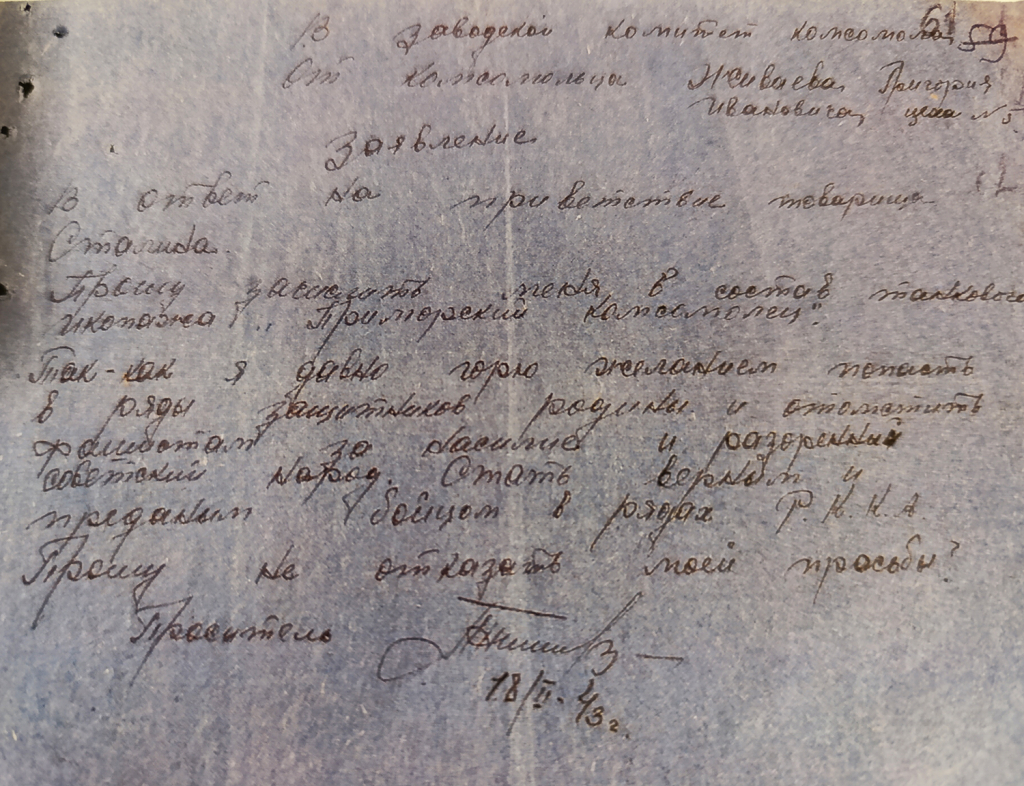 В заводской комитет комсомола
От комсомольца Живаева Григория
Ивановича, цеха №5
Заявление
В ответ на приветствие товарища
Сталина.
Прошу зачислить меня в состав танкового
икопажа „Приморский комсомолец".
Так-как я давно горю желанием попасть
в ряды защитников родины и отомстить
фашистам за насилие и разорений
советский народ. Стать верным и
преданым бойцом в рядах Р.К.К.А
Прошу не отказать моей просьбы
Проситель
18/II-43г.